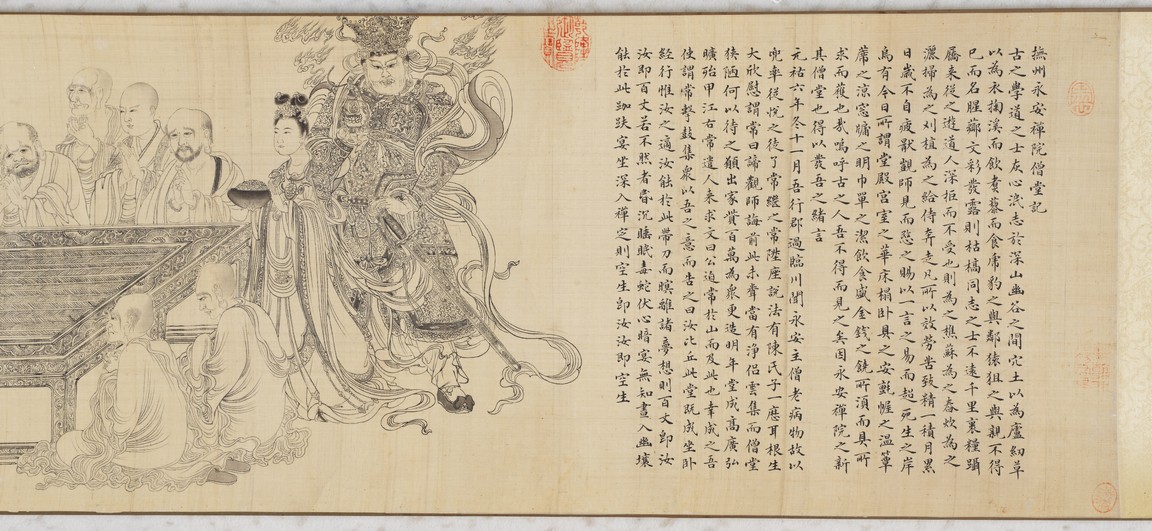 撫州永安禪院僧堂記
古之學道之士灰心泯志於深山幽谷之間穴土以為廬紉草
以為衣掬溪而飲煑藜而食虎豹之與鄰猿狙之與親不得
已而名腥薌文彩發露則枯槁同志之士不遠千里裹糧躡
屩來從之遊道人深拒而不受也則為之樵蘇為之舂炊為之
灑掃為之刈植為之給侍奔走凡所以效勞苦致精一積月累
日歲不自疲厭觀師見而愍之賜以一言之易而超死生之岸
烏有今日所謂堂殿宮室之華床榻臥具之安氈幄之溫簟
蓆之涼窓牖之明巾單之潔飲食盛金錢之饒所湏而具所
求而獲也哉嗚呼古之人吾不得而見之矣因永安禪院之新
其僧堂也得以發吾之緒言
元祐六年冬十一月吾行郡過臨川聞永安主僧老病物故以
兜率從悅之徒了常繼之常陞座說法有陳氏子一歷耳根生
大欣慰謂常曰諦觀師誨前此未聞當有淨侶雲集而僧堂
狹陋何以待之願出家貲百萬為衆更造明年堂成高廣弘
曠殆甲江右常遣人來求文曰公迫常於山而及此也幸成之吾
使謂常擊鼓集衆以吾之意而告之曰汝比丘此堂既成坐臥
經行惟汝之適汝能於此帶刀而瞑離諸夢想則百丈即汝
汝即百丈若不然者昏沉睡眠毒蛇伏心暗冥無知晝入幽壤
能於此跏趺宴坐深入禪定則空生即汝汝即空生